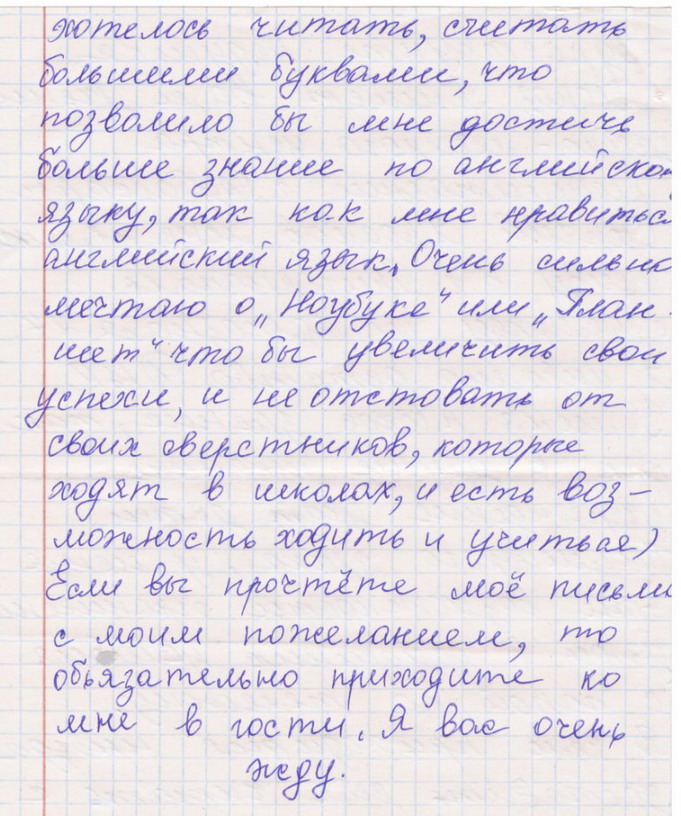 хотелось читать, считать
большими буквами, что
позволило бы мне достичь
больше знание по английско
языку, так как мне нравитьс
английский язык. Очень сильно
мечтаю о „Ноубуке" или „План-
шет" что бы увеличить свои
успехи, и не отстовать от
своих сверстников, которые
ходят в школах, и есть воз-
можность ходить и учиться)
Если вы прочтёте моё письмо
с моим пожеланием, то
обьязательно приходите ко
мне в гости. Я вас очень
жду.